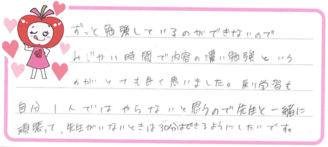 ずっと勉強しているのができないので
みじかい時間で内容の濃い勉強という
のがとても良く思いました。予習も
自分1人ではやらないと思うので先生と一緒に
頑張って、先生がいないときは30分はできるようにしたいです。